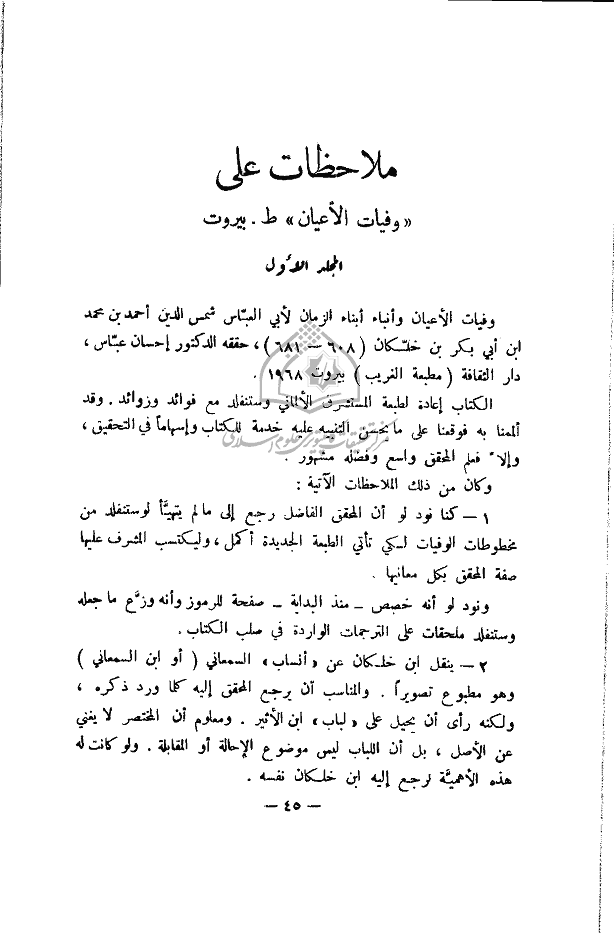 ملاحظات على
« وفيات الأعيان » ط . بيروت
المجلد الأول
وفيات الأعيان وأنباء أبناء الزمان لأبي العبّاس شمس الدين أحمد بن محمد
ابن أبي بكر بن خلّكان ( ٦٠٨ – ٦٨١ ) ، حققه الدكتور إحسان عبّاس ،
دار الثقافة ( مطبعة الغريب ) بيروت ١٩٦٨ .
الكتاب إعادة لطبعة المستشرق الألماني وستنفلد مع فوائد وزوائد . وقد
ألممنا به فوقعنا على ما يحسن التنبيه عليه خدمة للكتاب وإسهاماً في التحقيق ،
وإلاّ فعلم المحقق واسع وفضله مشهور .
وكان من ذلك الملاحظات الآتية :
١ – كنا نود لو أن المحقق الفاضل رجع إلى مالم يتهيّأ لوستنفلد من
مخطوطات الوفيات لكي تأتي الطبعة الجديدة أكمل ، وليكتسب المشرف عليها
صفة المحقق بكل معانيها .
ونود لو أنه خصص – منذ البداية – صفحة للرموز وأنه وزّع ما جعله
وستنفلد ملحقات على الترجمات الواردة في صلب الكتاب .
٢ – ينقل ابن خلكان عن « أنساب » السمعاني ( أو ابن السمعاني )
وهو مطبوع تصويراً . والمناسب أن يرجع المحقق إليه كلما ورد ذكره ،
ولكنه رأى أن يحيل على « لباب » ابن الأثير . ومعلوم أن المختصر لا يغني
عن الأصل ، بل أن اللباب ليس موضوع الإحالة أو المقابلة . ولو كانت له
هذه الأهميّة لرجع إليه ابن خلكان نفسه .
– ٤٥ –